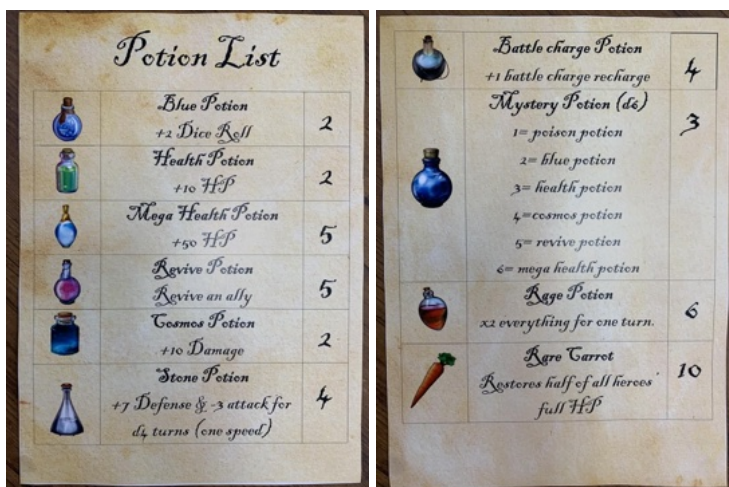 Potion List
Blue Potion
+2 Dice Roll
2
Health Potion
+10 HP
2
Mega Health Potion
+50 HP
5
Revive Potion
Revive an ally
5
Cosmos Potion
+10 Damage
2
Stone Potion
+7 Defense & -3 attack for
d4 turns (one speed)
4
Battle charge Potion
+1 battle charge recharge
4
Mystery Potion (d6)
3
1= poison potion
2= blue potion
3= health potion
4=cosmos potion
5= revive potion
6= mega health potion
Rage Potion
x2 everything for one turn.
6
Rare Carrot
Restores half of all heroes'
full HP
10